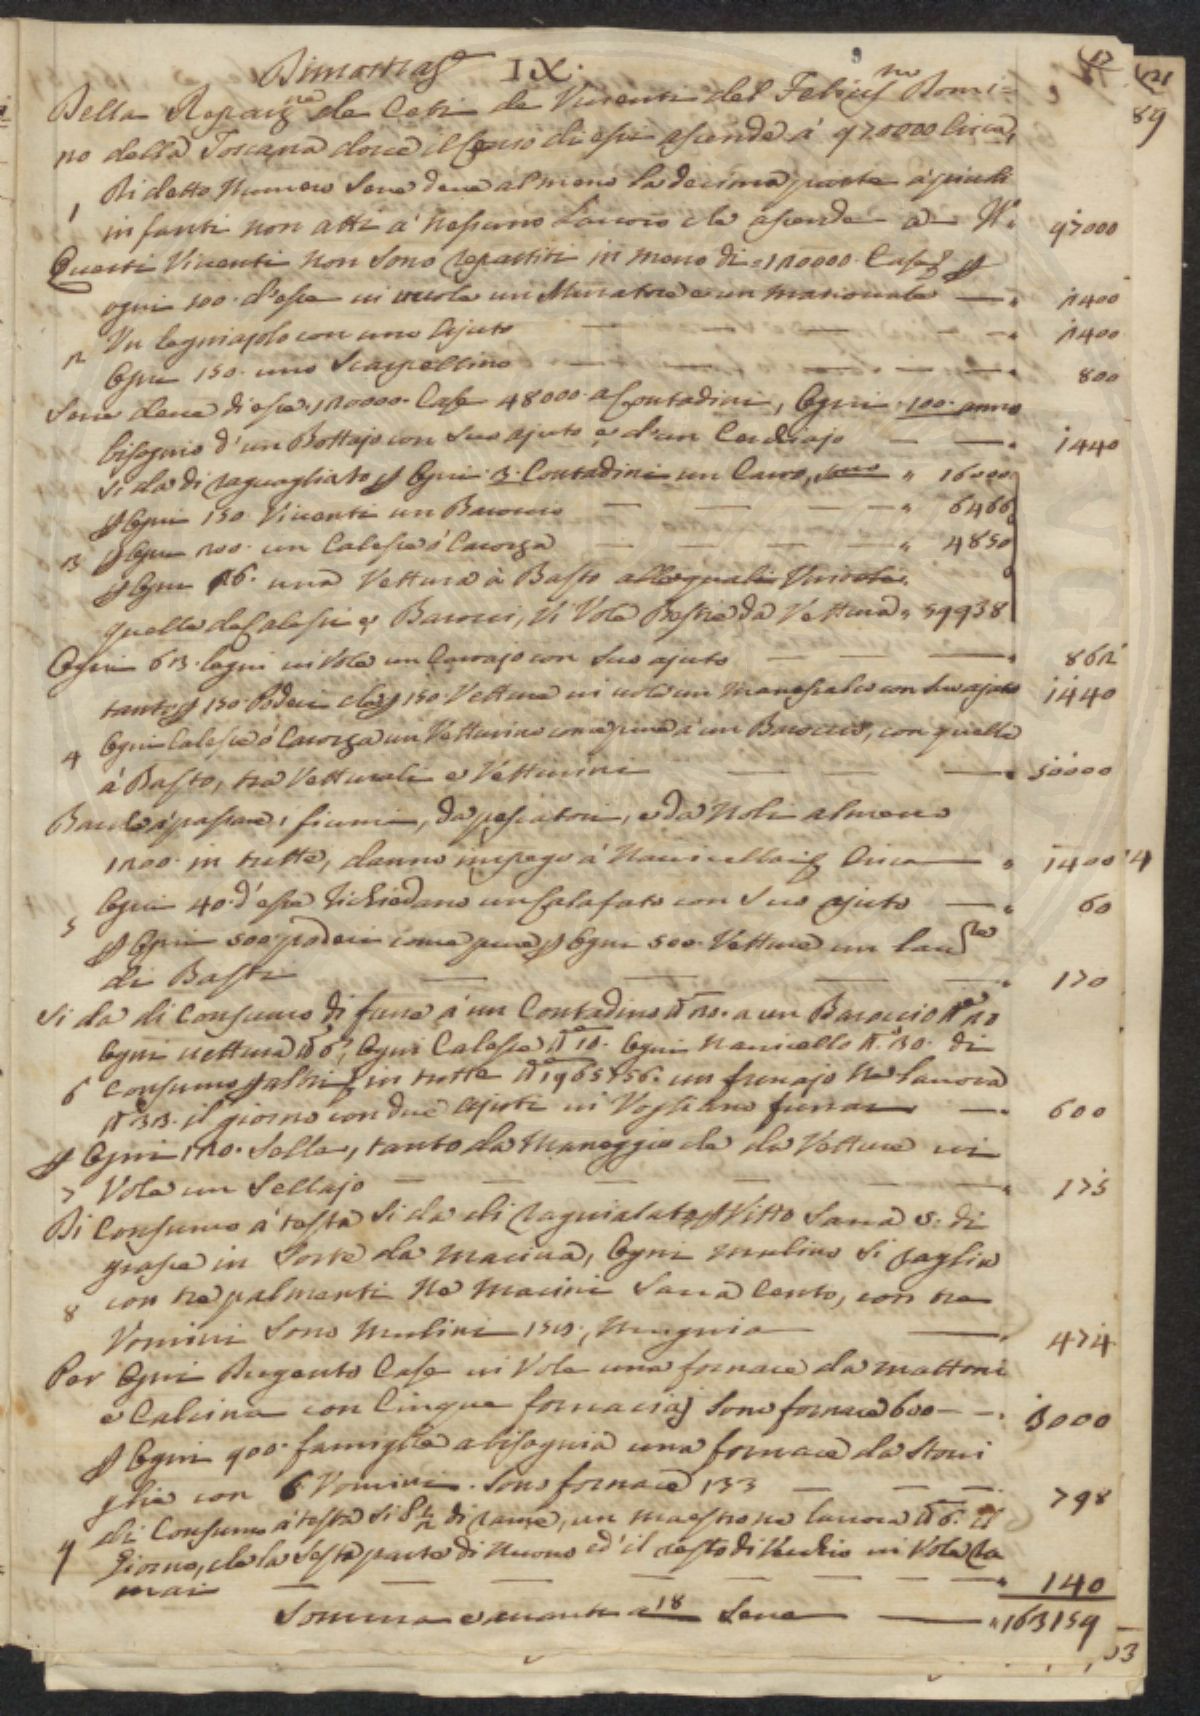 Dimostraz IX.
Della Reparz.ne de Ceti de Viventi del Felicis.mo Domi=
no della Toscana dove il Censo di essi ascende à 970000 circa,
1 Di detto Numero Sene deve almeno la decima parte à piccoli
infanti non atti à nessuno Lavoro che ascende a N.o 97000
Questi Viventi non Sono repartiti in meno di 120000 Case
ogni 100 d'esse vi vuole un Muratore e un manovale 2400
2 Un legniajolo con uno Ajuto 2400
Ogni 150 uno Scarpellino 800
Sene deve di esse 120000 Case 48000 a Contadini, Ogni 100 anno
bisognio d'un Bottajo con Suo ajuto e d'un Cerchiajo 1440
Si da di raguagliato Ogni 3 Contadini un Carro, 16000
Ogni 150 Viventi un Baroccio 6466
3 Ogni 200 un Calesse ò Carozza 4850
Ogni 16 una Vettura à Basto
quelle de Calessi e Barocci, Vi Vole Bestie da Vettura 59938
Ogni 63 legni vi Vole un Carrajo con Suo ajuto 862
tanto 150 Poderi che 150 Vetture vi vole un Manescalco con Suo ajuto 1440
4 Ogni Calesse ò Carozza un Vetturino come pure à un Baroccio, con quelle
à Basto, tra Vetturali e Vetturini 50000
Barche à passare i fiumi, da pescatori, e da Noli almeno
1200 in tutte, danno impiego à Navicellai Circa 1400
5 Ogni 40 d'esse richiedano un Calafato con Suo ajuto 60
Ogni 500 poderi come pure Ogni 500 Vetture un
di Basti 170
Si da di Consumo di fune à un Contadino 20 a un Baroccio 20
Ogni vettura 6, Ogni Calesse 10 Ogni Navicello 30 di
6 Consumo altri in tutte 1965756 un funajo Ne lavora
33 il giorno con due Ajuti vi Vogliano funai 600
Ogni 120 Selle, tanto da Maneggio che da Vettura vi
7 Vole un Sellajo 175
Di Consumo à testa Si da di raguialato Vitto Sacca 5 di
grasce in Sorte da Macina, Ogni mulino Si raglia
8 con tre palmenti Ne Macini Sacca Cento, con tre
Vomini Sono Mulini 158, Mugniai 474
Per Ogni Dugento Case vi Vole una fornace da mattoni
e Calcina con Cinque fornaciaj Sono fornace 600 3000
Ogni 900 famiglie abisognia una fornace da Stovi
glie con 6 Vomini Sono fornace 133 798
9 di Consumo à testa Si di rame, un maestro ne lavora 6 il
Giorno, che la Sesta parte di Nuovo ed il resto di Vecchio vi Vole ra
mai 140
Somma e avanti a 18 Sene 163159
89